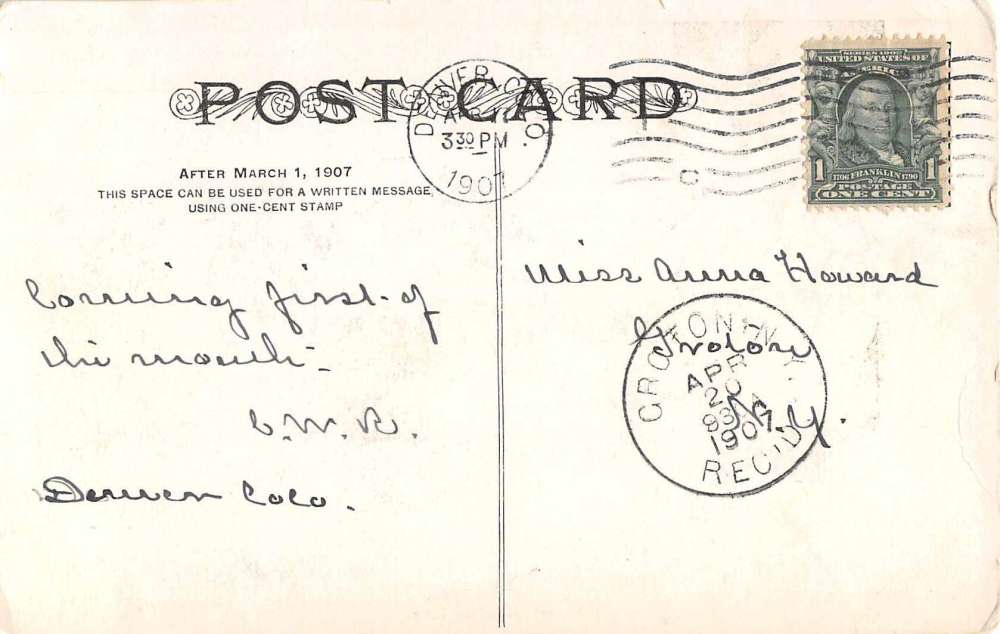 POST CARD
AFTER MARCH 1, 1907
THIS SPACE CAN BE USED FOR A WRITTEN MESSAGE,
USING ONE-CENT STAMP
DENVER, COLO
3 30 PM
1907
SERIES 1902
UNITED STATES OF
AMERICA
1706 FRANKLIN 1790
1 POSTAGE 1
ONE CENT
Coming first of
the month-
C.W.R.
Denver Colo.
Miss Anna Howard
Groton
N.Y.
GROTON, N.Y.
APR
20
1907
REC'D.